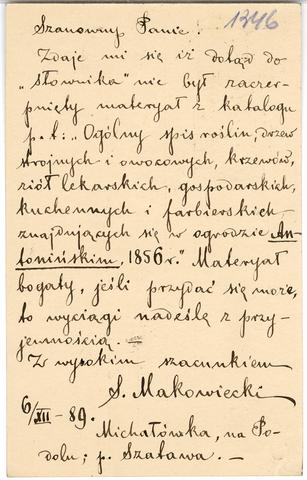 1346
Szanowny Panie!
Zdaje mi się iż dotąd do
"słownika" nie był zaczer-
pnięty materyał z katalogu
p.t: "Ogólny spis roślin, drzew
strojnych i owocowych, krzewów,
ziół lekarskich, gospodarskich,
kuchennych i farbierskich,
znajdujących się w ogrodzie An-
tonińskim, 1856 r." Materyał
bogaty, jeśli przydać się może,
to wyciągi nadeślę z przy-
jemnością. —
Z wysokim szacunkiem
S. Makowiecki
6/XII - 89.
Michałówka, na Po-
dolu; p. Szatawa. —